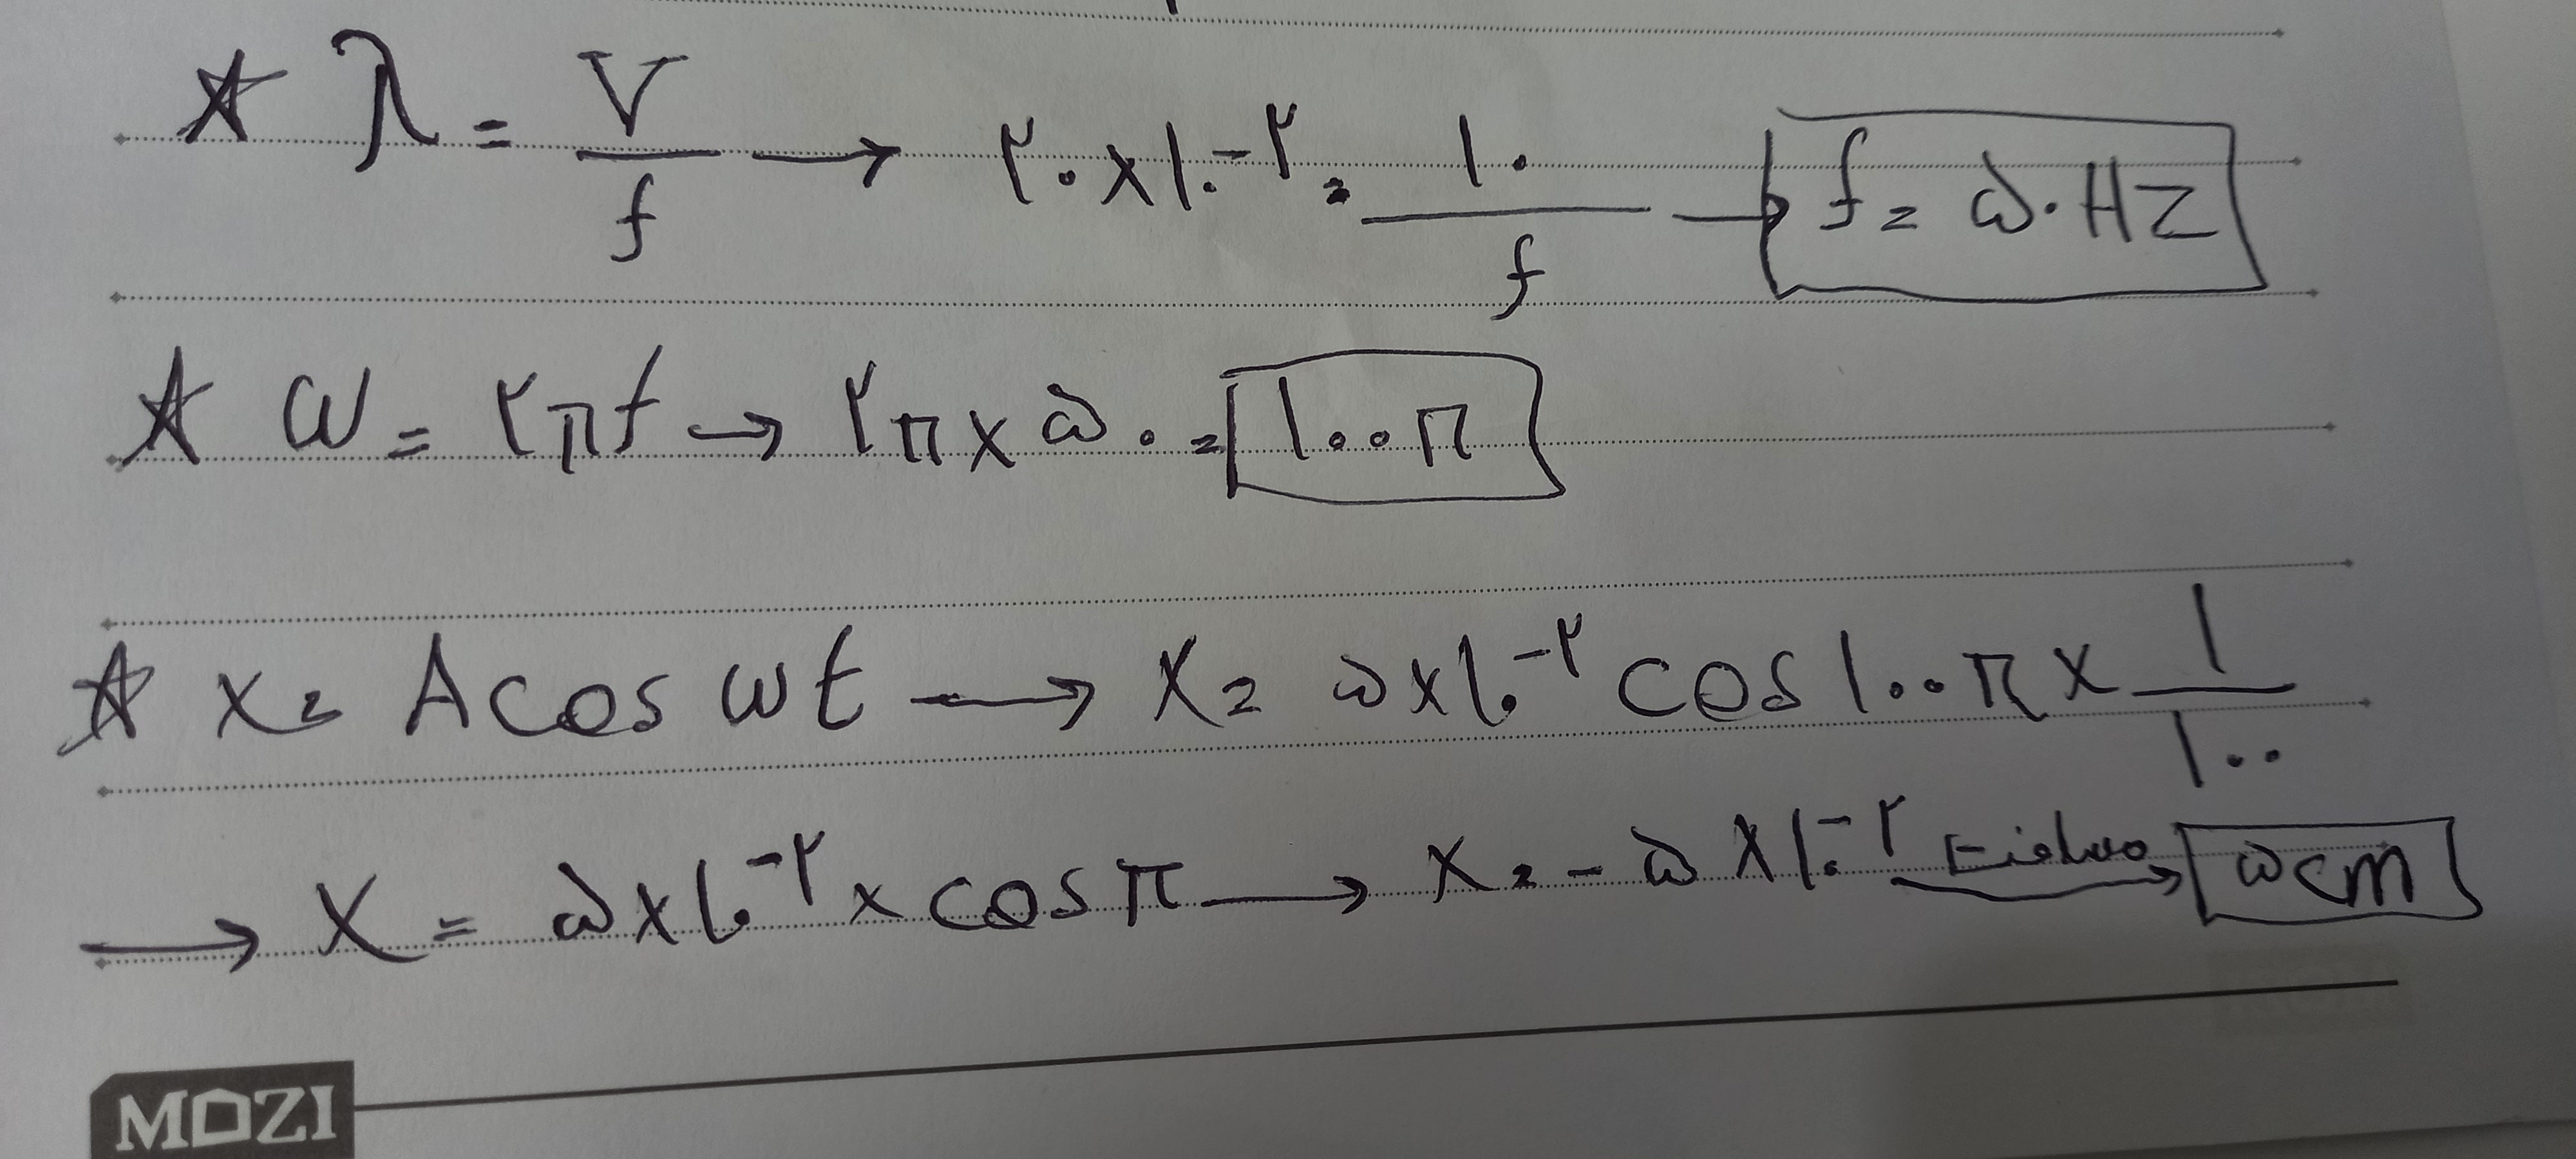 λ = V/f → ۲۰×۱۰⁻² = ۱۰/f → f = ۵۰ Hz
ω = ۲πf → ۲π×۵۰ = ۱۰۰π
x = A cos ωt → x = ۵×۱۰⁻² cos ۱۰۰π × ۱/۱۰۰
→ x = ۵×۱۰⁻² × cos π → x = -۵×۱۰⁻² → ۵cm
MOZI